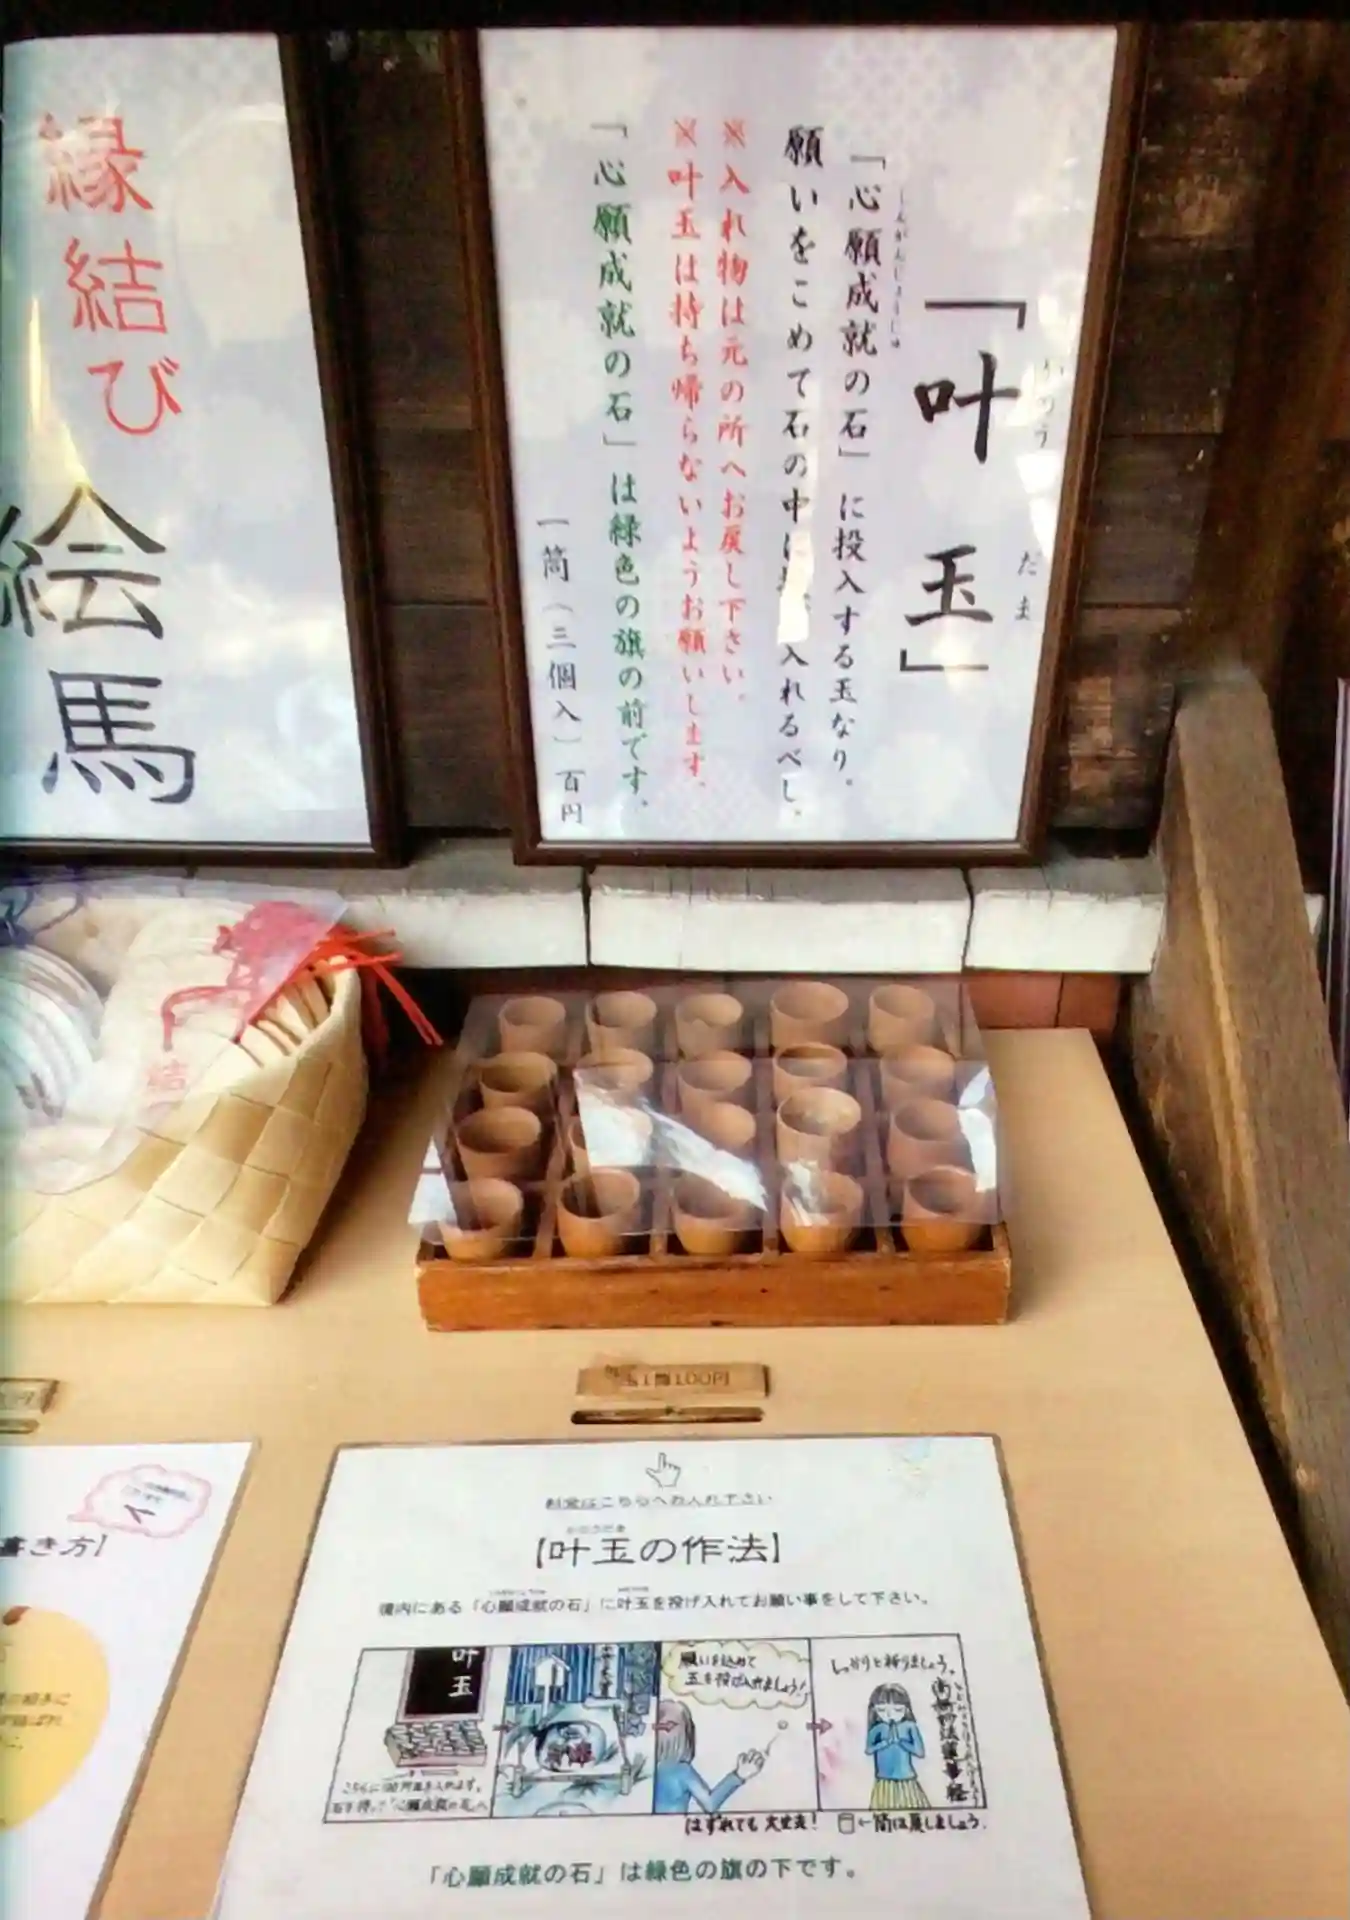 縁結び
絵馬
「叶玉」
かのう だま
「心願成就の石」に投入する玉なり。
しんがんじょうじゅ
願いをこめて石の中に 入れるべし。
※入れ物は元の所へお戻し下さい。
※叶玉は持ち帰らないようお願いします。
「心願成就の石」は緑色の旗の前です。
一筒(三個入)百円
玉1筒100円
料金はこちらへお入れ下さい
【叶玉の作法】
境内にある「心願成就の石」に叶玉を投げ入れてお願い事をして下さい。
叶玉
こちらに100円玉を入れます。
願いを込めて
玉を投げ入れましょう!
しっかりと祈りましょう。
はずれても大丈夫!
←筒は戻しましょう。
「心願成就の石」は緑色の旗の下です。
書き方】